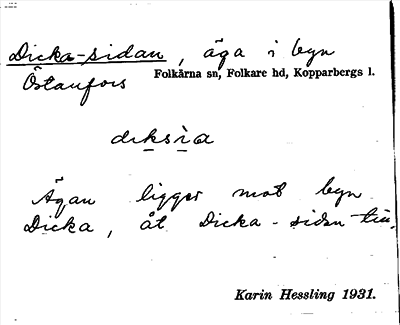 Dicka-sidan, äga i byn
Östanfors
Folkärna sn, Folkare hd, Kopparbergs l.
diksìa
Ägan ligger mot byn
Dicka, åt Dicka-sidan till.
Karin Hessling 1931.